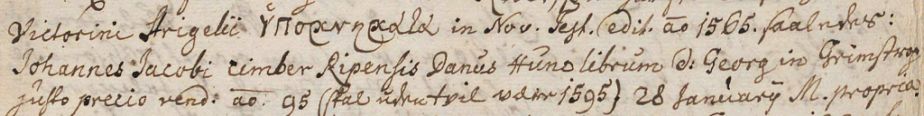 Victorini Strigelii Ὑποχνηχαλα in Nov. Test. (edit. ao 1565. saaledes:
Johannes Jacobi cimber Ripensis Danus Hunc librum d: Georg in Grimstrop
justo precio vend: ao. 95 (skal uden tvil være 1595) 28 Januarij M. propria.